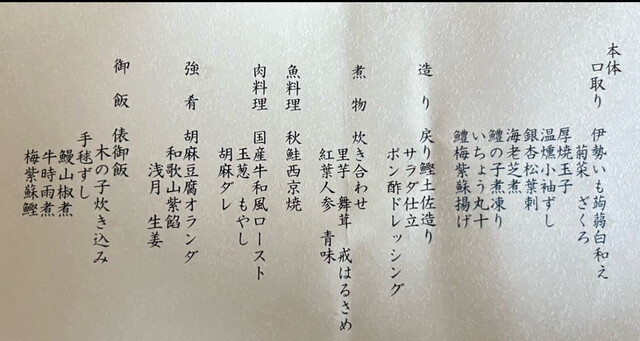 本体
口取り 伊勢いも蒟蒻白和え
菊菜 ざくろ
厚焼玉子
温燻小袖ずし
銀杏松葉刺
海老芝煮
鱧の子煮凍り
いちょう丸十
鱧梅紫蘇揚げ
造り 戻り鰹土佐造り
サラダ仕立
ポン酢ドレッシング
煮物 炊き合わせ
里芋 舞茸 戒はるさめ
紅葉人参 青味
魚料理 秋鮭西京焼
肉料理 国産牛和風ロースト
玉葱 もやし
胡麻ダレ
強肴 胡麻豆腐オランダ
和歌山紫餡
浅月 生姜
御飯 俵御飯
木の子炊き込み
手毬ずし
鰻山椒煮
牛時雨煮
梅紫蘇鰹